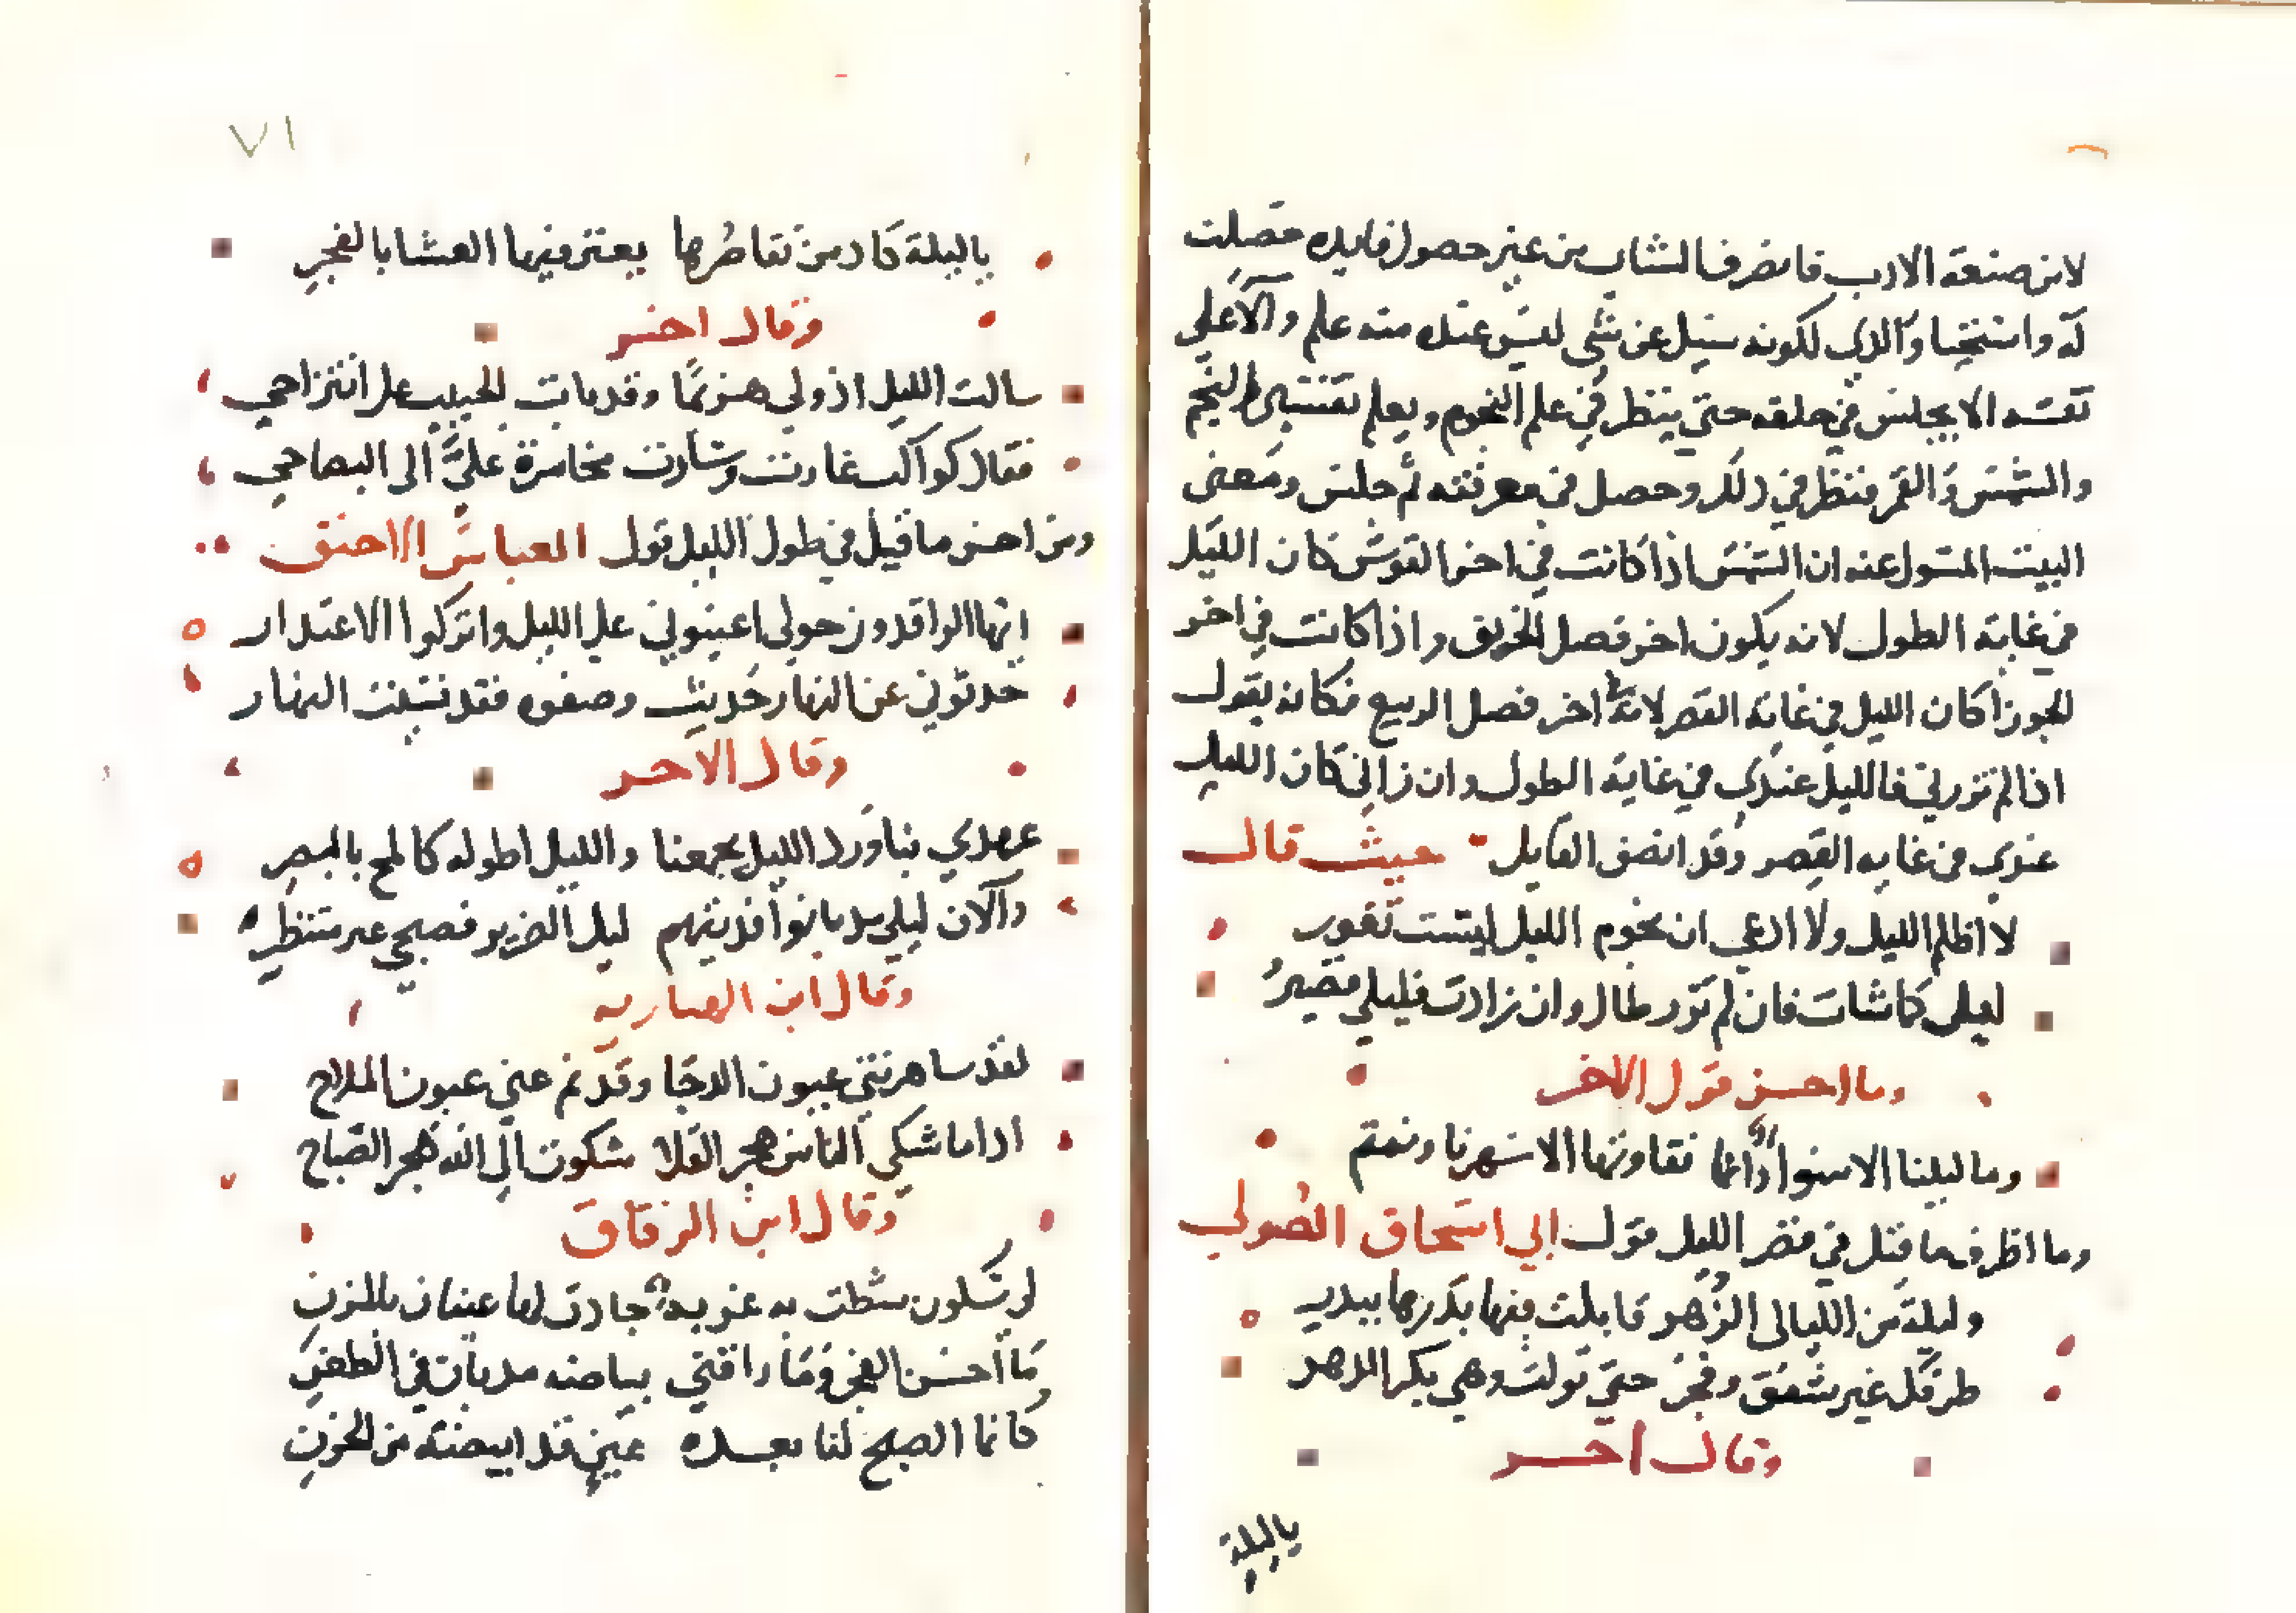 لا من صنعة الادب فانصرف الشاب من غير حصول فايده حصلت
له واستحيا والدي لكونه سيل عن شي ليس عنده منه علم وآلا على
نفسه الا يجلس في حلقه حتى ينظر في علم النجوم ويعلم تفسير النجم
والشمس والقمر فنظر في ذلك وحصل في معرفته ثم جلس ومعنى
البيت المسول عنه ان الشمس اذا كانت في اخر القوس كان الليل
في غاية الطول لانه يكون اخر فصل الخريف واذا كانت في اخر
الجوزا كان الليل في غاية القصر لانه اخر فصل الربيع فكانه يقول
اذا لم تزورني فالليل عندي في غاية الطول وان زارني كان الليل
عندي في غايه القصر وقد انصف القايل حيث قال
لا اظلم الليل ولا ادعي ان نجوم الليل ليست تغور
ليلى كما شات فان لم تزر طال وان زارت فليلي قصير
وما احسن قول الاخر
وما ليلنا الا سوا وانما تفاوتها الا سهرنا ونمتم
وما اظرف ما قيل في قصر الليل قول ابي اسحاق الصولي
وليلة من الليالى الزهر قابلت فيها بدرها ببدر
لم تك غير شفق وفجر حتى تولت وهي بكر الدهر
وقال آخر
ياليلة
٧١
ياليلة كاد من تقاصرها يعثر فيها العشا بالفجر
وقال اخر
سالت الليل اذ ولى هزيما وقد بات الحبيب على انتزاحي
فقال كواكب غارت وسارت مخامرة علي الى الصباحي
ومن احسن ما قيل في طول الليل قول العباس الاحنف
ايها الراقدون حولي اعينوني على الليل واتركوا الاعتذار
حدثوني عن النهار حديث وصفوه فقد نسيت النهار
وقال الاخر
عهدي بنا ورد الليل يجمعنا والليل اطوله كاللمح بالبصر
والآن ليلي مذ بانوا فديتهم ليل الضرير فصبحي غير منتظر
وقال ابن الهباريه
لقد ساهرتني عيون الدجا وقد نم عني عيون الملاح
اذا ما شكى الناس هجر الملاح شكوت الى الله هجر الصباح
وقال ابن الزقاق
ما احسن الفجر وما راقني بياضه مذ بان في الظعن
كانما الصبح لنا بعده عين قد ابيضت من الحزن